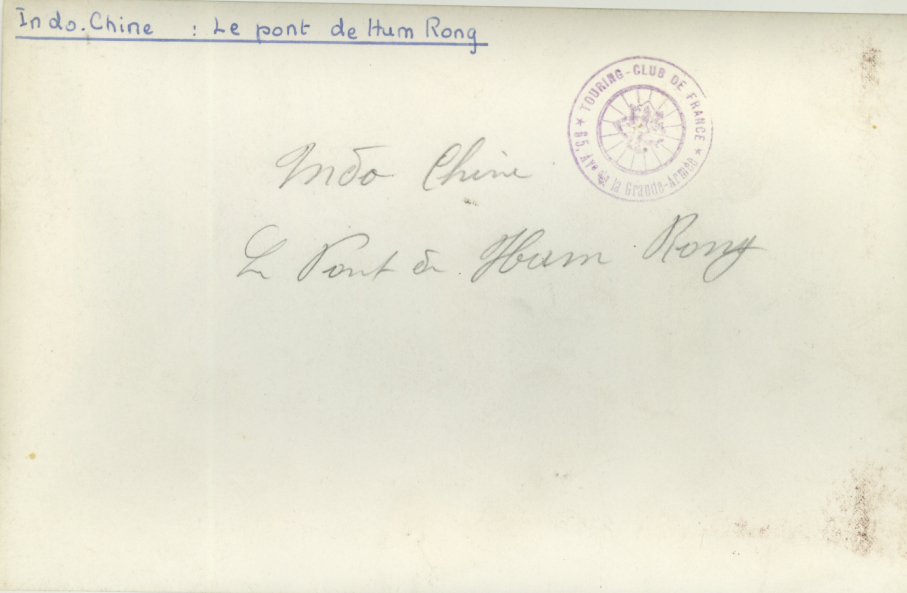 Indo.Chine : Le pont de Hum Rong
TOURING-CLUB DE FRANCE
★ 65, Av<sup>e</sup> de la Grande-Armée ★
Indo Chine
Le Pont de Ham Rong